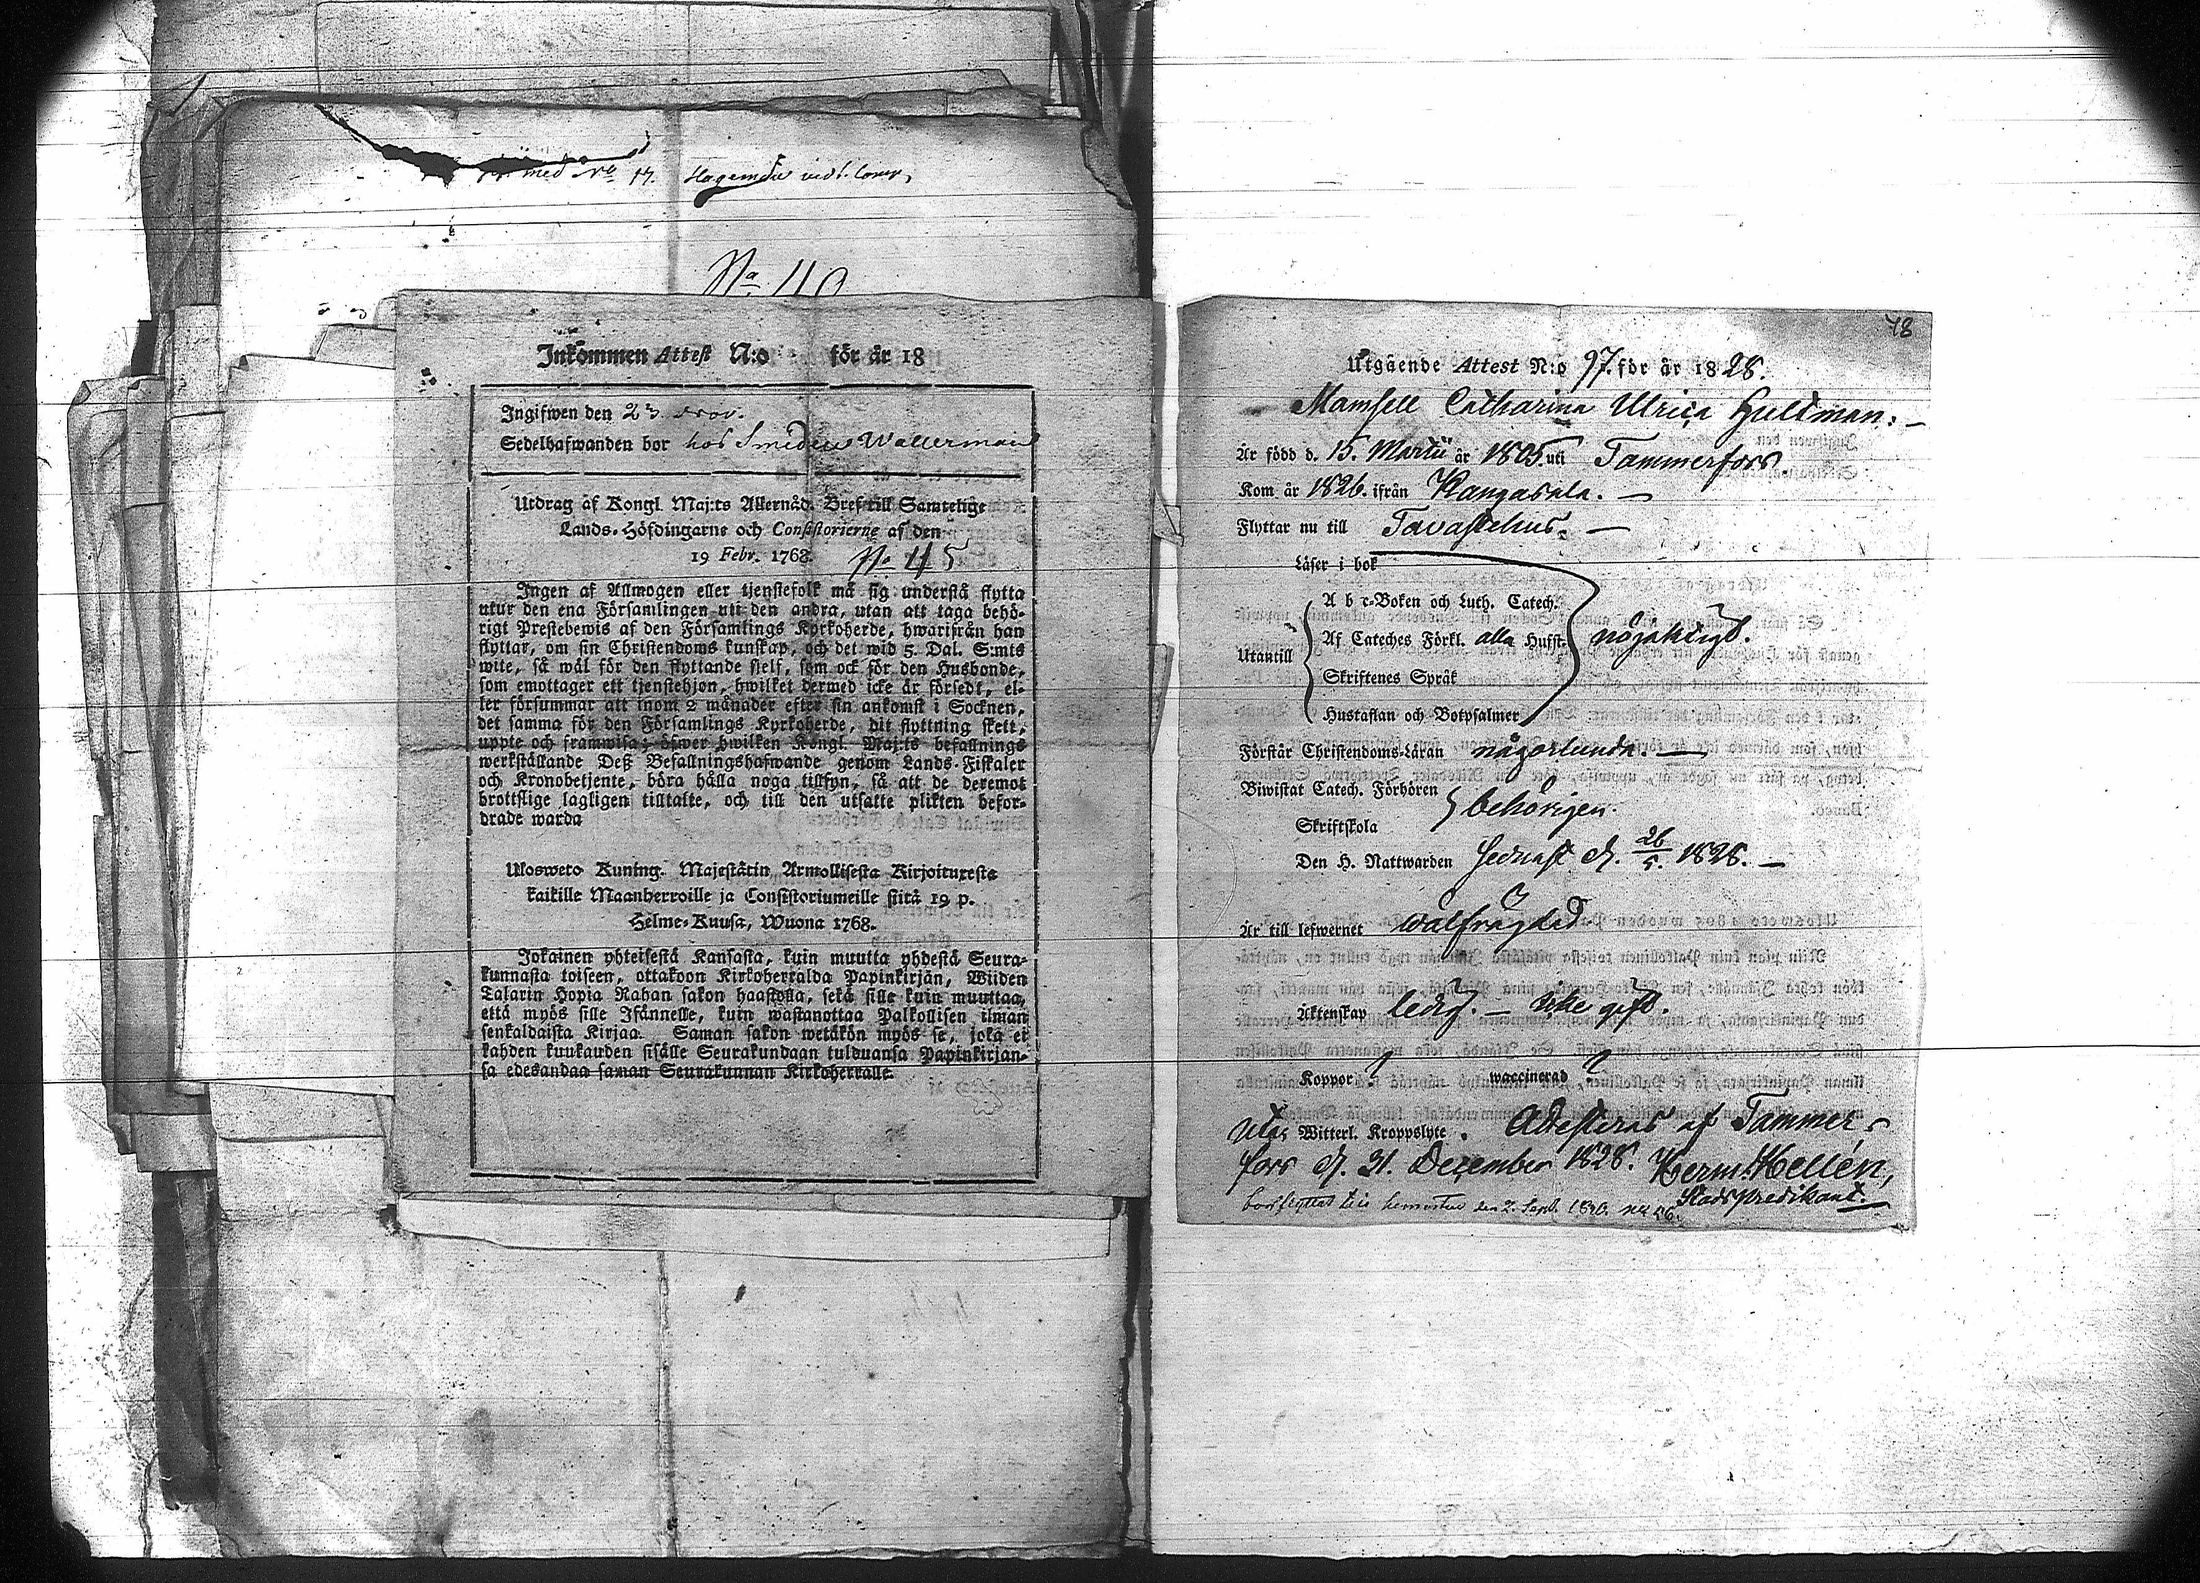 med No 17.
No 40
Inkommen Attest N:o för år 18
Ingifwen den 23. Nov.
Sedelhafwanden bor hos Smeden Wallerman
Utdrag af Kongl. Maj:ts Allernåd. Bref till Samtelige
Lands-Höfdingarne och Consistorierne af den
19 Febr. 1768.
No 45
Ingen af Allmogen eller tjenstefolk må sig understå flytta
utur den ena Församlingen uti den andra, utan att taga behö-
rigt Prestebewis af den Församlings Kyrkoherde, hwarifrån han
flyttar, om sin Christendoms kunskap, och det wid 5. Dal. S:mts
wite, så wäl för den flyttande sjelf, som ock för den Husbonde,
som emottager ett tjenstehjon, hwilket dermed icke är försedt, el-
ler försummar att inom 2 månader efter sin ankomst i Socknen,
det samma för den Församlings Kyrkoherde, dit flyttning skett,
uppte och framwisa; öfwer hwilken Kongl. Maj:ts befallnings
werkställande Deß Befallningshafwande genom Lands-Fiskaler
och Kronobetjente, böra hålla noga tillsyn, så att de deremot
brottslige lagligen tilltalte, och till den utsatte plikten befor-
drade warda
Ulosweto Kuning. Majestätin Armollisesta Kirjoituxesta
kaikille Maanherroille ja Consistoriumeille siitä 19 p.
Helme-Kuusa, Wuona 1768.
Jokainen yhteisestä Kansasta, kuin muutta yhdestä Seura-
kunnasta toiseen, ottakoon Kirkoherralda Papinkirjan, Wiiden
Talarin Hopia Rahan sakon haastolla, sekä sille kuin muuttaa,
että myös sille Isännelle, kuin wastanottaa Palkollisen ilman
senkaldaista Kirjaa. Saman sakon wetäkön myös se, joka ei
kahden kuukauden sisälle Seurakundaan tulduansa Papinkirjan-
sa edesandaa saman Seurakunnan Kirkoherralle.
48
Utgående Attest N:o 97. för år 1828.
Mamsell Catharina Ulrica Hultman:
Är född d. 15. Martii år 1805. uti Tammerfors.
Kom år 1826. ifrån Kangasala.
Flyttar nu till Tavastehus.
Läser i bok
A b c-Boken och Luth. Catech.
Utantill Af Cateches Förkl. alla Husst. nöjaktigt.
Skriftenes Språk
Hustaflan och Botpsalmer
Förstår Christendoms-Läran någorlunda.
Biwistat Catech. Förhören
behörigen.
Skriftskola
Den H. Nattwarden sednast d. 26/5. 1828.
Är till lefwernet wälfrägdad
Äktenskap ledig. – icke gift.
Koppor ? waccinerad ?
utan Witterl. Kroppslyte. Attesteras af Tammer-
fors d. 31. December 1828. Herm. Hellén,
Stadspredikant.
den 2. Sept. 1830.